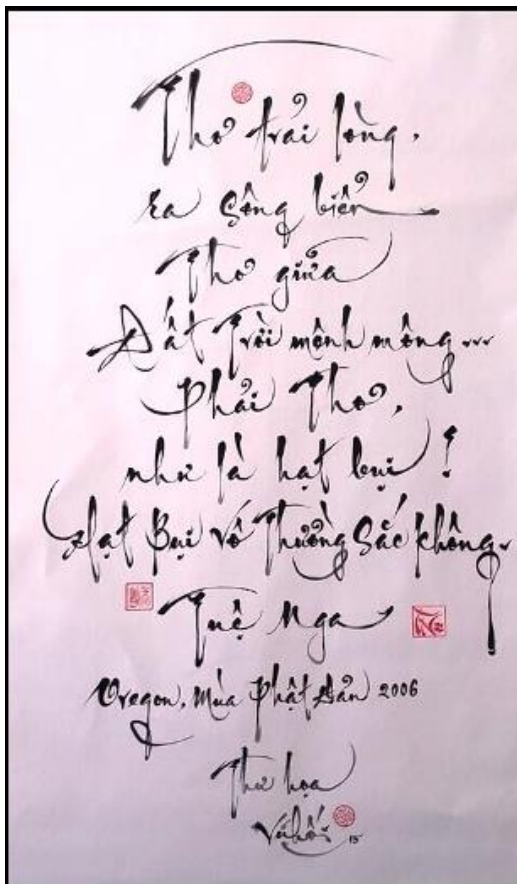 Thơ trải lòng,
ra sông biển
Thơ giữa
Đất Trời mênh mông...
Phải Thơ,
như là hạt bụi !
Hạt Bụi Vô Thường Sắc không.
Tuệ Nga
Oregon, Mùa Phật Đản 2006
Thư họa
Vũ hối 15